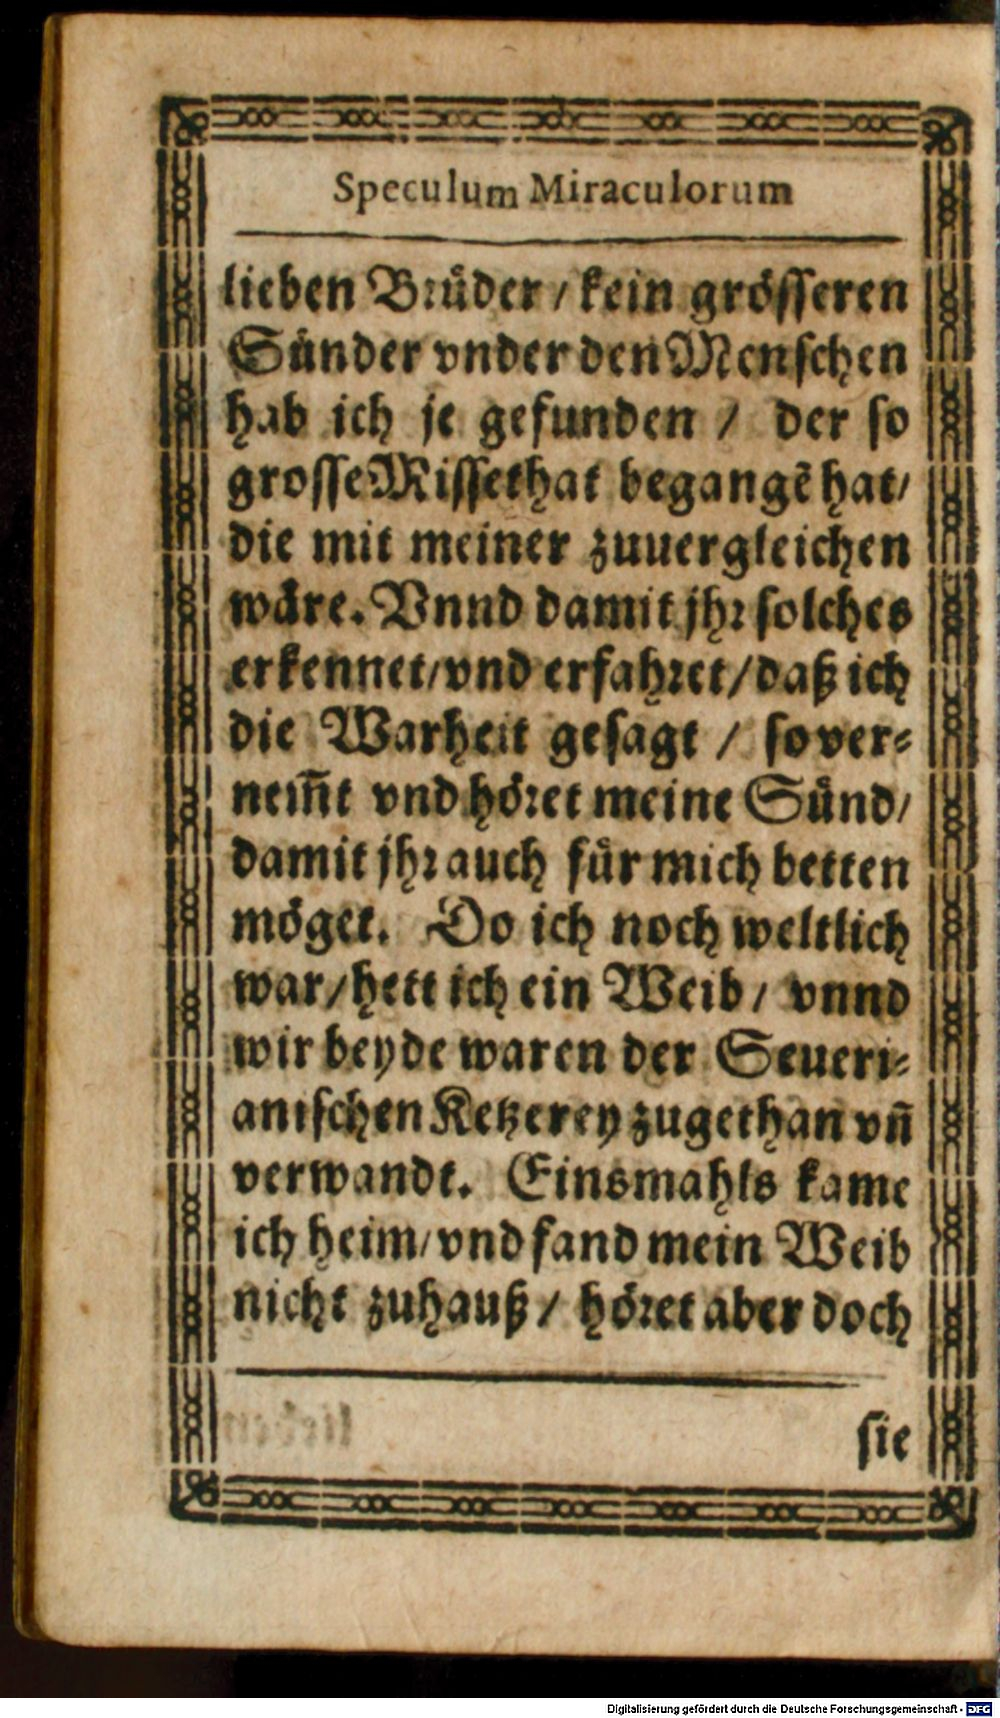 Speculum Miraculorum
lieben Bruͤder / kein groͤſſeren
Suͤnder vnder den Menſchen
hab ich je gefunden / der ſo
groſſe Miſſethat begangẽ hat/
die mit meiner zuuergleichen
waͤre. Vnnd damit jhꝛ ſolches
erkennet/vnd erfahꝛet/daß ich
die Warheit geſagt / ſo ver⸗
nem̃t vnd hoͤꝛet meine Suͤnd/
damit jhꝛ auch fuͤr mich betten
moͤget. Do ich noch weltlich
war/hett ich ein Weib/ vnnd
wir beyde waren der Seueri⸗
aniſchen Ketzerey zugethan vñ
verwandt. Einsmahls kame
ich heim/vnd fand mein Weib
nicht zuhauß/ hoͤꝛet aber doch
ſie
Digitalisierung gefördert durch die Deutsche Forschungsgemeinschaft - DFG